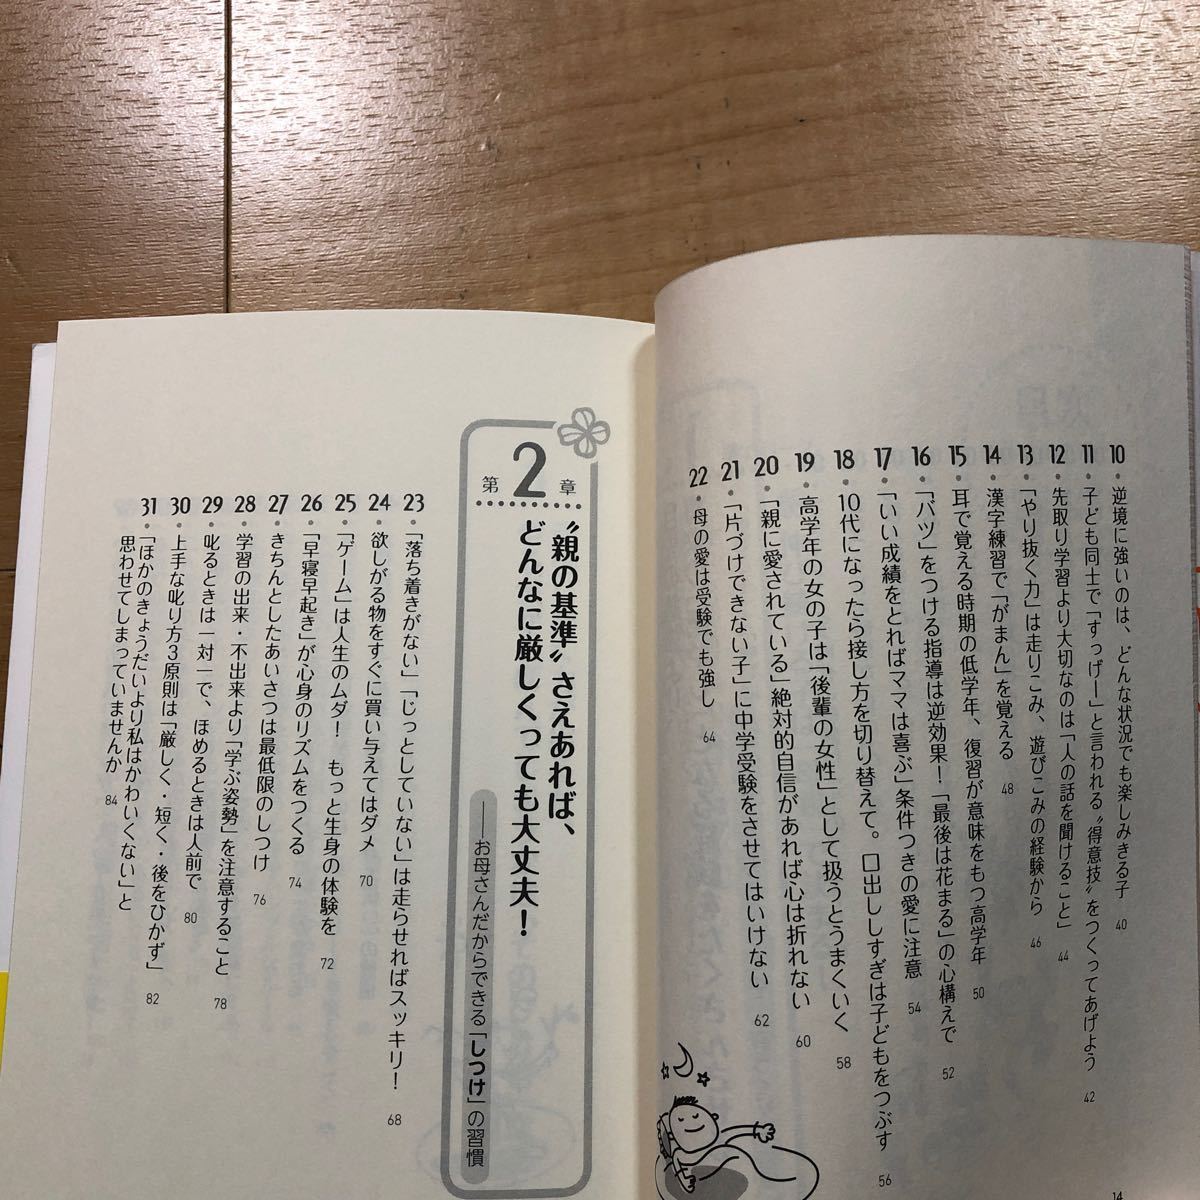 10・逆境に強いのは、どんな状況でも楽しみきる子 40
11・子ども同士で「すっげー」と言われる〝得意技〟をつくってあげよう 42
12・先取り学習より大切なのは「人の話を聞けること」 44
13・「やり抜く力」は走りこみ、遊びこみの経験から 46
14・漢字練習で「がまん」を覚える 48
15・耳で覚える時期の低学年、復習が意味をもつ高学年 50
16・「バツ」をつける指導は逆効果!「最後は花まる」の心構えで 52
17・「いい成績をとればママは喜ぶ」条件つきの愛に注意 54
18・10代になったら接し方を切り替えて。口出ししすぎは子どもをつぶす 56
19・高学年の女の子は「後輩の女性」として扱うとうまくいく 58
20・「親に愛されている」絶対的自信があれば心は折れない 60
21・「片づけできない子」に中学受験をさせてはいけない 62
22・母の愛は受験でも強し 64
14
第2章
〝親の基準〟さえあれば、
どんなに厳しくっても大丈夫!
──お母さんだからできる「しつけ」の習慣
23・「落ち着きがない」「じっとしていない」は走らせればスッキリ! 68
24・欲しがる物をすぐに買い与えてはダメ 70
25・「ゲーム」は人生のムダ! もっと生身の体験を 72
26・「早寝早起き」が心身のリズムをつくる 74
27・きちんとしたあいさつは最低限のしつけ 76
28・学習の出来・不出来より「学ぶ姿勢」を注意すること 78
29・叱るときは一対一で、ほめるときは人前で 80
30・上手な叱り方3原則は「厳しく・短く・後をひかず」 82
31・「ほかのきょうだいより私はかわいくない」と
思わせてしまっていませんか 84